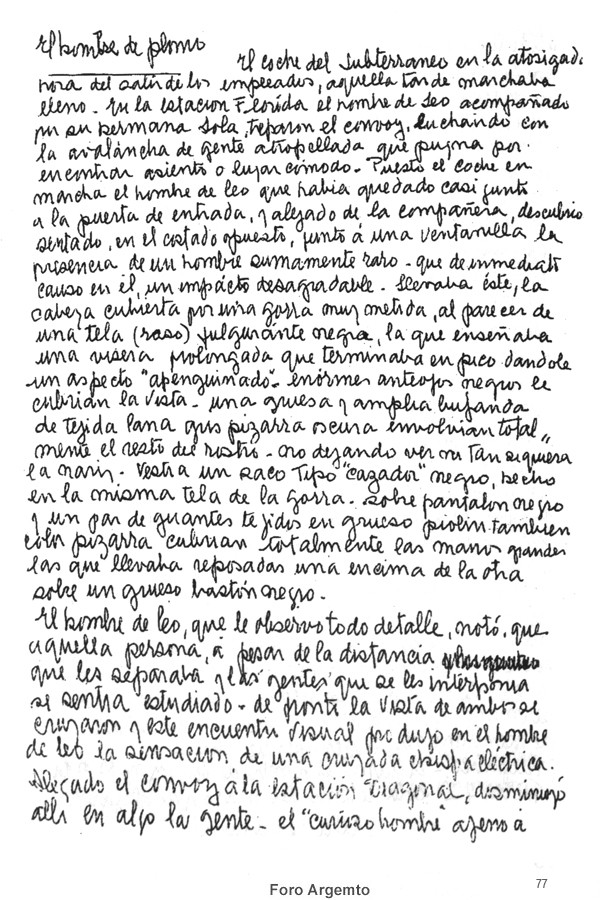 El hombre de plomo
El coche del subterraneo en la atosigada
hora del salir de los empleados, aquella tarde marchaba
lleno - En la estacion Florida el hombre de leo acompañado
por su hermana Sola, treparon el convoy, luchando con
la avalancha de gente atropellada que pugna por
encontrar asiento o lugar cómodo - Puesto el coche en
marcha el hombre de leo que habia quedado casi junto
a la puerta de entrada, y alejado de la compañera, descubrio
sentado, en el costado opuesto, junto á una ventanilla la
presencia de un hombre sumamente raro - que de inmediato
causo en él, un impacto desagradable - Llevaba éste, la
cabeza cubierta por una gorra muy metida, al parecer de
una tela (raso) fulgurante negra, la que enseñaba
una visera prolongada que terminaba en pico dandole
un aspecto "apenguinado" - enormes anteojos negros le
cubrian la vista - una gruesa y amplia bufanda
de tejida lana gris pizarra oscura envolvian total
mente el resto del rostro - no dejando ver ni tan siquiera
la nariz - Vestia un saco tipo "cazador" negro, hecho
en la misma tela de la gorra - sobre pantalon negro
y un par de guantes tejidos en grueso piolin tambien
color pizarra cubrian totalmente las manos grandes
las que llevaba reposadas una encima de la otra
sobre un grueso bastón negro -
El hombre de leo, que le observo todo detalle, notó, que
aquella persona, á pesar de la distancia
que les separaba y las gentes que se les interponia
se sentia estudiado - de pronto la vista de ambos se
cruzaron y este encuentro visual produjo en el hombre
de leo la sensacion de una cruzada chispa eléctrica.
Llegado el convoy á la estación "Diagonal, disminuyó
alli en algo la gente - el "curioso hombre" ajeno á
77
Foro Argemto